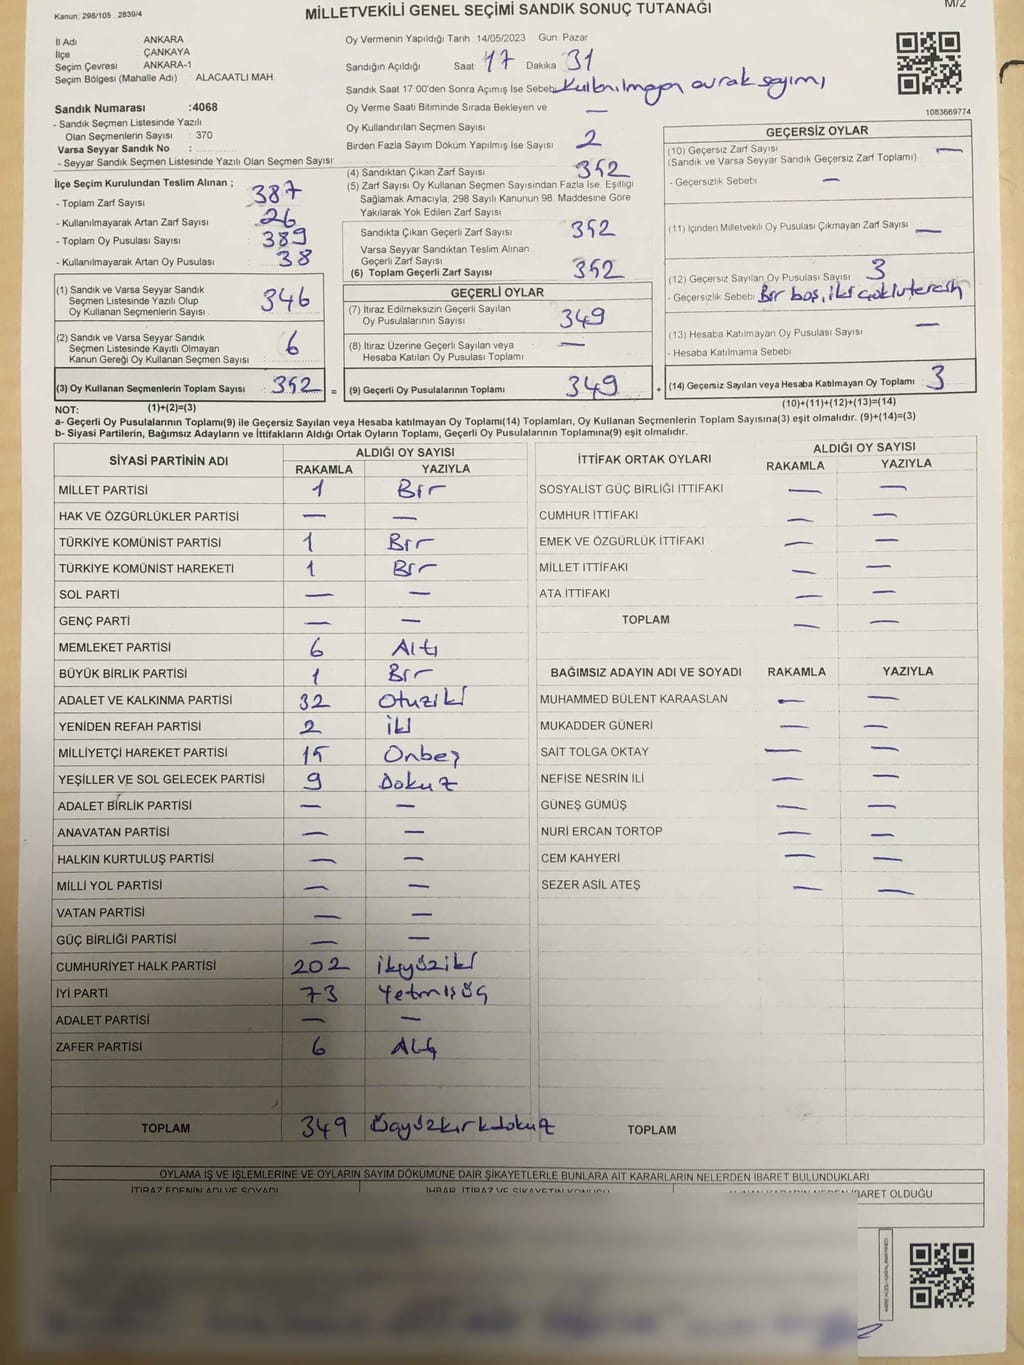 M/2
Kanun: 298/105 . 2839/4
MİLLETVEKİLİ GENEL SEÇİMİ SANDIK SONUÇ TUTANAĞI
İl Adı : ANKARA
İlçe : ÇANKAYA
Seçim Çevresi : ANKARA-1
Seçim Bölgesi (Mahalle Adı) : ALACAATLI MAH.
Sandık Numarası :4068
- Sandık Seçmen Listesinde Yazılı
Olan Seçmenlerin Sayısı : 370
Varsa Seyyar Sandık No :
- Seyyar Sandık Seçmen Listesinde Yazılı Olan Seçmen Sayısı:
Oy Vermenin Yapıldığı Tarih : 14/05/2023 Gün: Pazar
Sandığın Açıldığı Saat: 17 Dakika 31
Sandık Saat 17.00'den Sonra Açımış İse Sebebi Kullanılmayan evrak sayımı
Oy Verme Saati Bitiminde Sırada Bekleyen ve —
Oy Kullandırılan Seçmen Sayısı
Birden Fazla Sayım Döküm Yapılmış İse Sayısı 2
1083669774
İlçe Seçim Kurulundan Teslim Alınan ;
- Toplam Zarf Sayısı : 387
- Kullanılmayarak Artan Zarf Sayısı : 26
- Toplam Oy Pusulası Sayısı : 389
- Kullanılmayarak Artan Oy Pusulası : 38
(1) Sandık ve Varsa Seyyar Sandık
Seçmen Listesinde Yazılı Olup
Oy Kullanan Seçmenlerin Sayısı : 346
(2) Sandık ve Varsa Seyyar Sandık
Seçmen Listesinde Kayıtlı Olmayan
Kanun Gereği Oy Kullanan Seçmen Sayısı : 6
(3) Oy Kullanan Seçmenlerin Toplam Sayısı : 352 =
(4) Sandıktan Çıkan Zarf Sayısı : 352
(5) Zarf Sayısı Oy Kullanan Seçmen Sayısından Fazla İse, Eşitliği
Sağlamak Amacıyla; 298 Sayılı Kanunun 98. Maddesine Göre
Yakılarak Yok Edilen Zarf Sayısı
Sandıkta Çıkan Geçerli Zarf Sayısı 352
Varsa Seyyar Sandıktan Teslim Alınan
Geçerli Zarf Sayısı
(6) Toplam Geçerli Zarf Sayısı 352
GEÇERLİ OYLAR
(7) İtiraz Edilmeksizin Geçerli Sayılan
Oy Pusulalarının Sayısı : 349
(8) İtiraz Üzerine Geçerli Sayılan veya
Hesaba Katılan Oy Pusulası Toplamı : —
(9) Geçerli Oy Pusulalarının Toplamı : 349 +
GEÇERSİZ OYLAR
(10) Geçersiz Zarf Sayısı : —
(Sandık ve Varsa Seyyar Sandık Geçersiz Zarf Toplamı)
- Geçersizlik Sebebi : —
(11) İçinden Milletvekili Oy Pusulası Çıkmayan Zarf Sayısı : —
(12) Geçersiz Sayılan Oy Pusulası Sayısı : 3
- Geçersizlik Sebebi : Bir boş, iki çoklu tercih
(13) Hesaba Katılmayan Oy Pusulası Sayısı : —
- Hesaba Katılmama Sebebi :
(14) Geçersiz Sayılan veya Hesaba Katılmayan Oy Toplamı : 3
NOT: (1)+(2)=(3) (10)+(11)+(12)+(13)=(14)
a- Geçerli Oy Pusulalarının Toplamı(9) ile Geçersiz Sayılan veya Hesaba katılmayan Oy Toplamı(14) Toplamları, Oy Kullanan Seçmenlerin Toplam Sayısına(3) eşit olmalıdır. (9)+(14)=(3)
b- Siyasi Partilerin, Bağımsız Adayların ve İttifakların Aldığı Ortak Oyların Toplamı, Geçerli Oy Pusulalarının Toplamına(9) eşit olmalıdır.
SİYASİ PARTİNİN ADI ALDIĞI OY SAYISI
RAKAMLA YAZIYLA
MİLLET PARTİSİ 1 Bir
HAK VE ÖZGÜRLÜKLER PARTİSİ — —
TÜRKİYE KOMÜNİST PARTİSİ 1 Bir
TÜRKİYE KOMÜNİST HAREKETİ 1 Bir
SOL PARTİ — —
GENÇ PARTİ — —
MEMLEKET PARTİSİ 6 Altı
BÜYÜK BİRLİK PARTİSİ 1 Bir
ADALET VE KALKINMA PARTİSİ 32 Otuziki
YENİDEN REFAH PARTİSİ 2 iki
MİLLİYETÇİ HAREKET PARTİSİ 15 Onbeş
YEŞİLLER VE SOL GELECEK PARTİSİ 9 Dokuz
ADALET BİRLİK PARTİSİ — —
ANAVATAN PARTİSİ — —
HALKIN KURTULUŞ PARTİSİ — —
MİLLİ YOL PARTİSİ — —
VATAN PARTİSİ — —
GÜÇ BİRLİĞİ PARTİSİ — —
CUMHURİYET HALK PARTİSİ 202 ikiyüziki
İYİ PARTİ 73 Yetmişüç
ADALET PARTİSİ — —
ZAFER PARTİSİ 6 Altı
TOPLAM 349 Üçyüzkırkdokuz
İTTİFAK ORTAK OYLARI ALDIĞI OY SAYISI
RAKAMLA YAZIYLA
SOSYALİST GÜÇ BİRLİĞİ İTTİFAKI — —
CUMHUR İTTİFAKI — —
EMEK VE ÖZGÜRLÜK İTTİFAKI — —
MİLLET İTTİFAKI — —
ATA İTTİFAKI — —
TOPLAM — —
BAĞIMSIZ ADAYIN ADI VE SOYADI RAKAMLA YAZIYLA
MUHAMMED BÜLENT KARAASLAN — —
MUKADDER GÜNERİ — —
SAİT TOLGA OKTAY — —
NEFİSE NESRİN İLİ — —
GÜNEŞ GÜMÜŞ — —
NURİ ERCAN TORTOP — —
CEM KAHYERİ — —
SEZER ASİL ATEŞ — —
TOPLAM
OYLAMA İŞ VE İŞLEMLERİNE VE OYLARIN SAYIM DÖKÜMÜNE DAİR ŞİKAYETLERLE BUNLARA AİT KARARLARIN NELERDEN İBARET BULUNDUKLARI
İTİRAZ EDENİN ADI VE SOYADI İHBAR, İTİRAZ VE ŞİKAYETİN KONUSU İBARET OLDUĞU